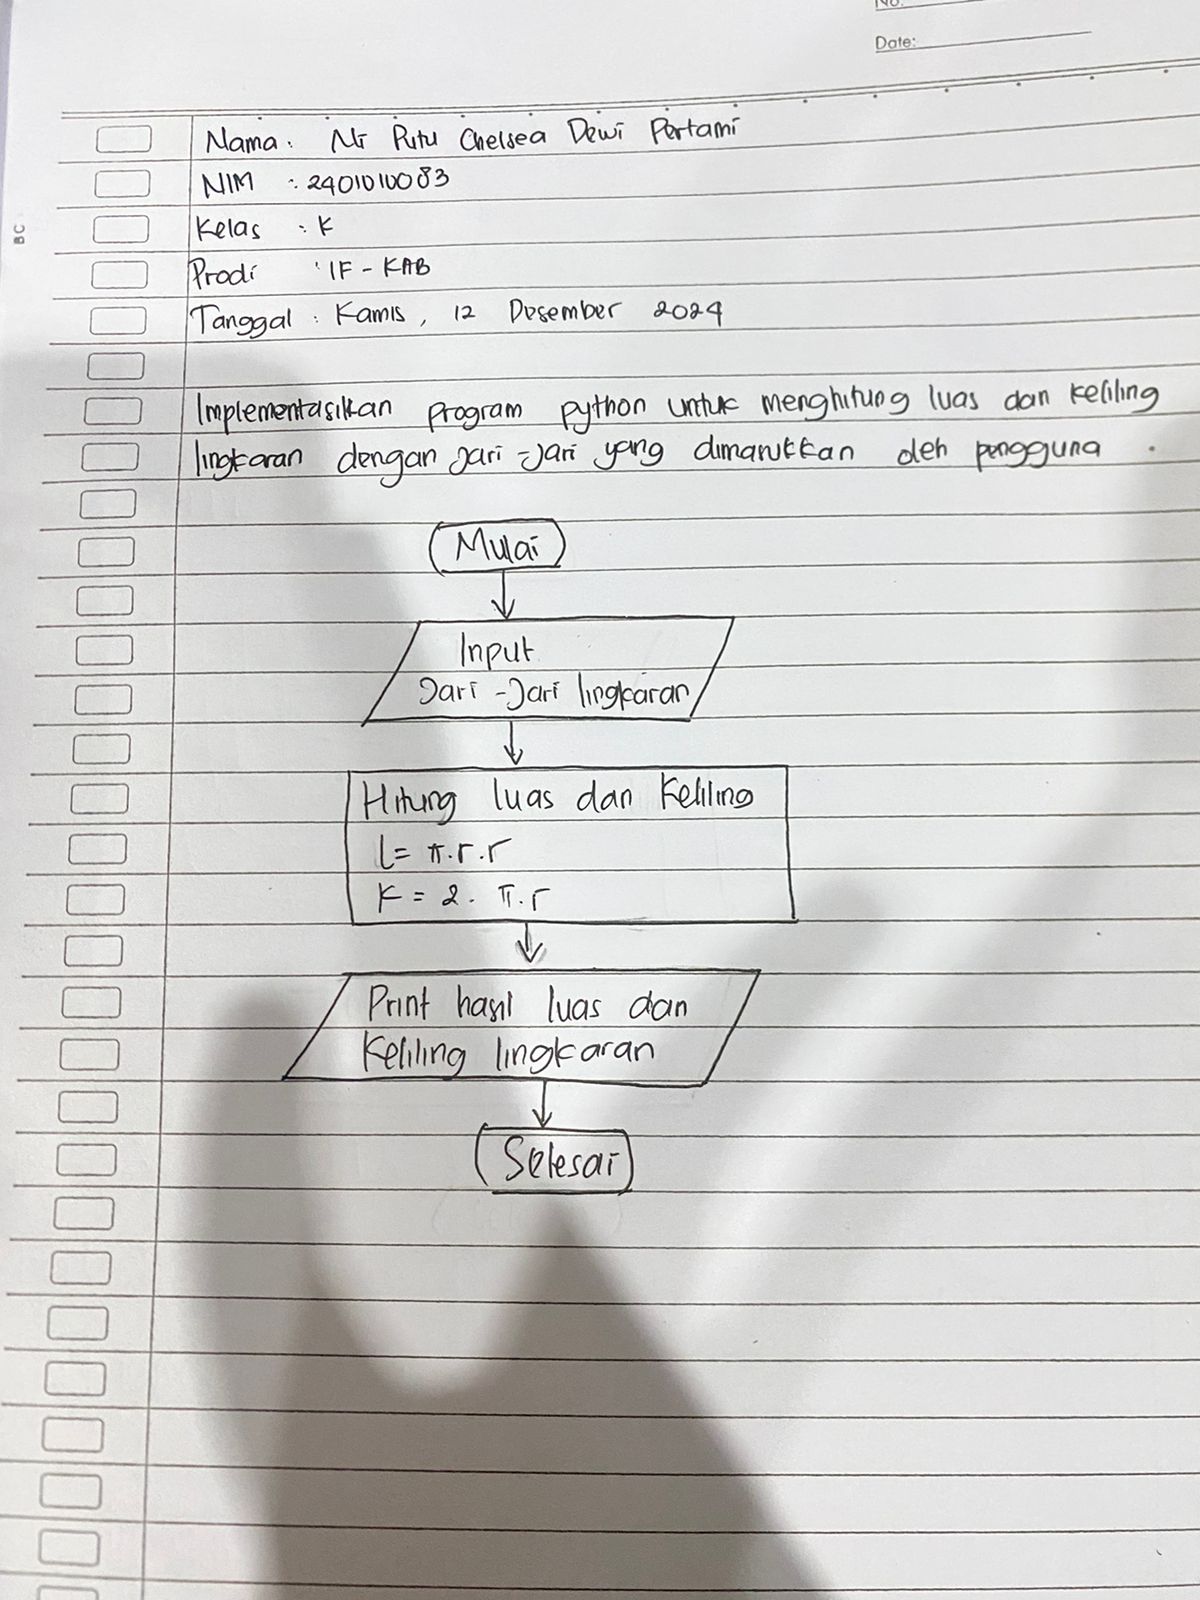 No.
Date:
BC
Nama : Ni Putu Chelsea Dewi Pertami
NIM : 2401010083
Kelas : K
Prodi : IF - KAB
Tanggal : Kamis, 12 Desember 2024
Implementasikan program python untuk menghitung luas dan keliling
lingkaran dengan Jari-Jari yang dimasukkan oleh pengguna .
Mulai
Input
Jari-Jari lingkaran
Hitung luas dan Keliling
L= π.r.r
K = 2. π.r
Print hasil luas dan
Keliling lingkaran
Selesai